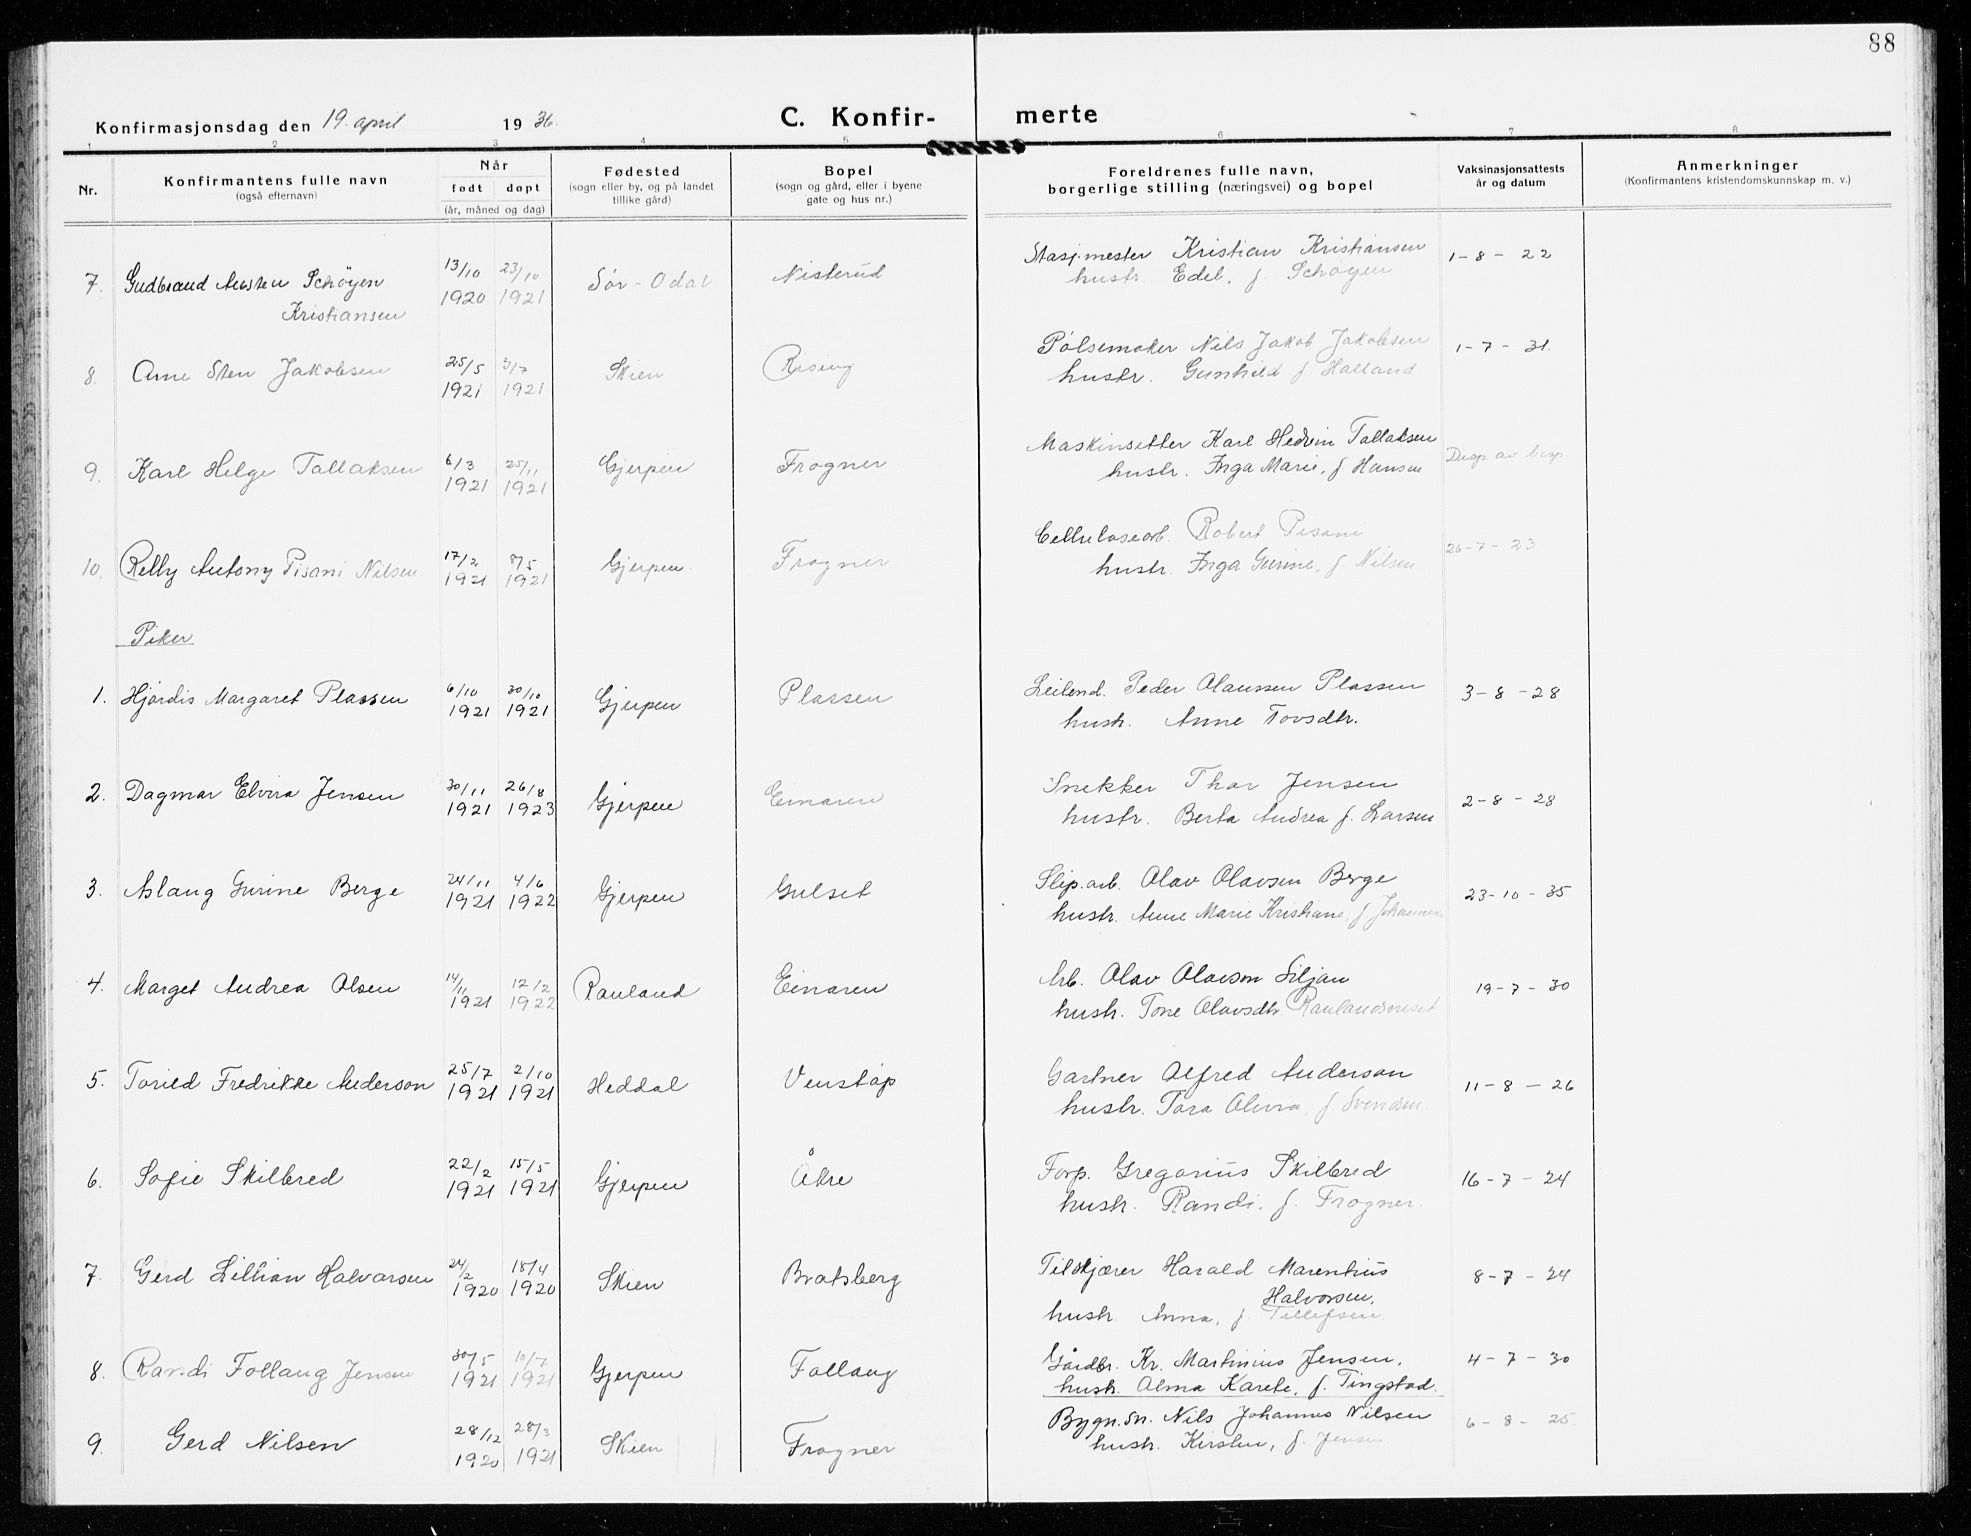 88
Konfirmasjonsdag den 19. april 1936.
C. Konfir- merte
1 2 3 4 5 6 7 8
Nr.
Konfirmantens fulle navn
(også efternavn)
Når
født døpt
(år, måned og dag)
Fødested
(sogn eller by, og på landet
tillike gård)
Bopel
(sogn og gård, eller i byene
gate og hus nr.)
Foreldrenes fulle navn,
borgerlige stilling (næringsvei) og bopel
Vaksinasjonsattests
år og datum
Anmerkninger
(Konfirmantens kristendomskunnskap m. v.)
7. Gudbrand Austen Schøyen 13/10 23/10 Sør-Odal Nisterud Stasj.mester Kristian Kristiansen 1-8-22
Kristiansen 1920 1921 hustr. Edel, f. Schøyen
8. Arne Sten Jakobsen 25/5 3/7 Skien Rising Pølsemaker Nils Jakob Jakobsen 1-7-31.
1921 1921 hustr. Gunhild f. Halland
9. Karl Helge Tallaksen 6/3 25/11 Gjerpen Frogner Maskinsetter Karl Hedvin Tallaksen Disp. av bisp.
1921 1921 hustr. Inga Marie, f. Hansen
10. Relly Antony Pisani Nilsen 17/2 8/5 Gjerpen Frogner Cellulosearb. Robert Pisani 26-7-23
1921 1921 hustr. Inga Gurine, f. Nilsen
Piker
1. Hjørdis Margaret Plassen 6/10 30/10 Gjerpen Plassen Leilend. Peder Olaussen Plassen 3-8-28
1921 1921 hustr. Anne Tovsdtr.
2. Dagmar Elvira Jensen 30/11 26/8 Gjerpen Einaren Snekker Thor Jensen 2-8-28
1921 1923 hustr. Berta Andrea f. Larsen
3. Aslaug Gurine Berge 24/11 4/6 Gjerpen Gulset Slip.arb. Olav Olavsen Berge 23-10-35
1921 1922 hustr. Anne Marie Kristiane, f.
4. Marget Andrea Olsen 14/11 12/2 Rauland Einaren Arb. Olav Olavson Siljan 19-7-30
1921 1922 hustr. Tone Olavsdtr. Raulandsneset
5. Torild Fredrikke Anderson 25/7 2/10 Heddal Venstøp Gartner Alfred Anderson 11-8-26
1921 1921 hustr. Tora Olivia, f. Svendsen
6. Sofie Skilbred 22/2 15/5 Gjerpen Åkre Forp. Gregorius Skilbred 16-7-24
1921 1921 hustr. Randi, f. Frogner.
7. Gerd Lillian Halvorsen 24/2 18/4 Skien Bratsberg Tilskjærer Harald Marentius 8-7-24
1920 1920 Halvorsen,
hustr. Anna, f. Tellefsen
8. Randi Follaug Jensen 30/5 10/7 Gjerpen Follaug Gårdbr. Kr. Martinius Jensen, 4-7-30
1921 1921 hustr. Alma Karete, f. Tingstad.
9. Gerd Nilsen 28/12 28/3 Skien Frogner Bygn.sn. Nils Johannes Nilsen 6-8-25
1920 1921 hustr. Kirsten, f. Jensen